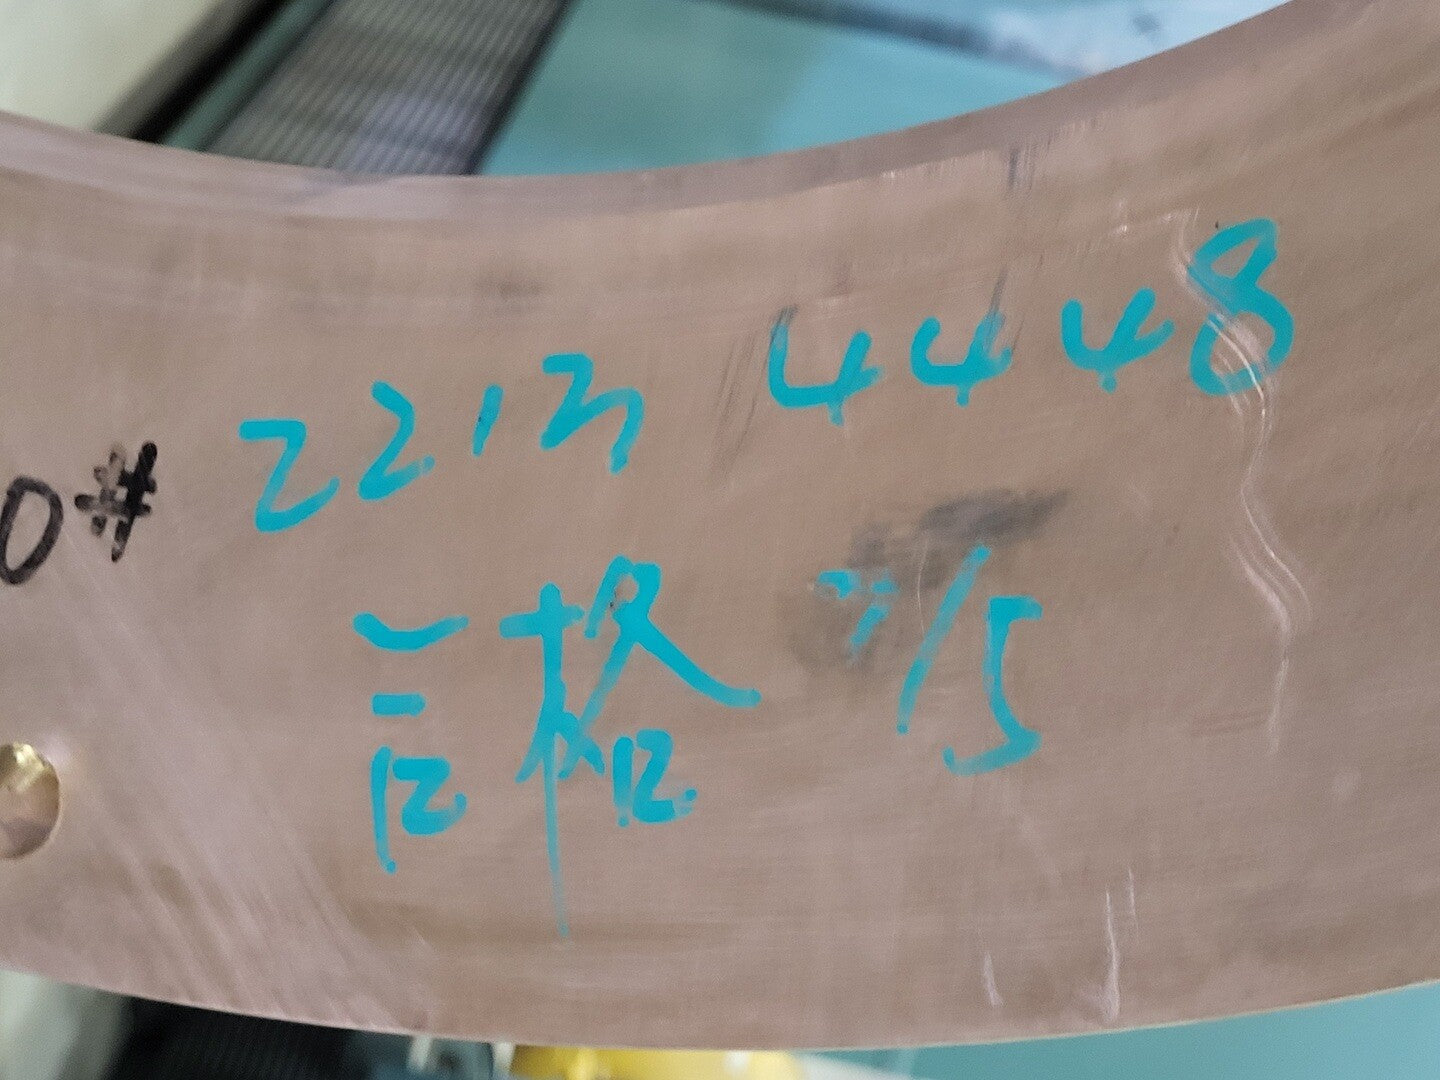 0#
2213 4448
合格 7/5